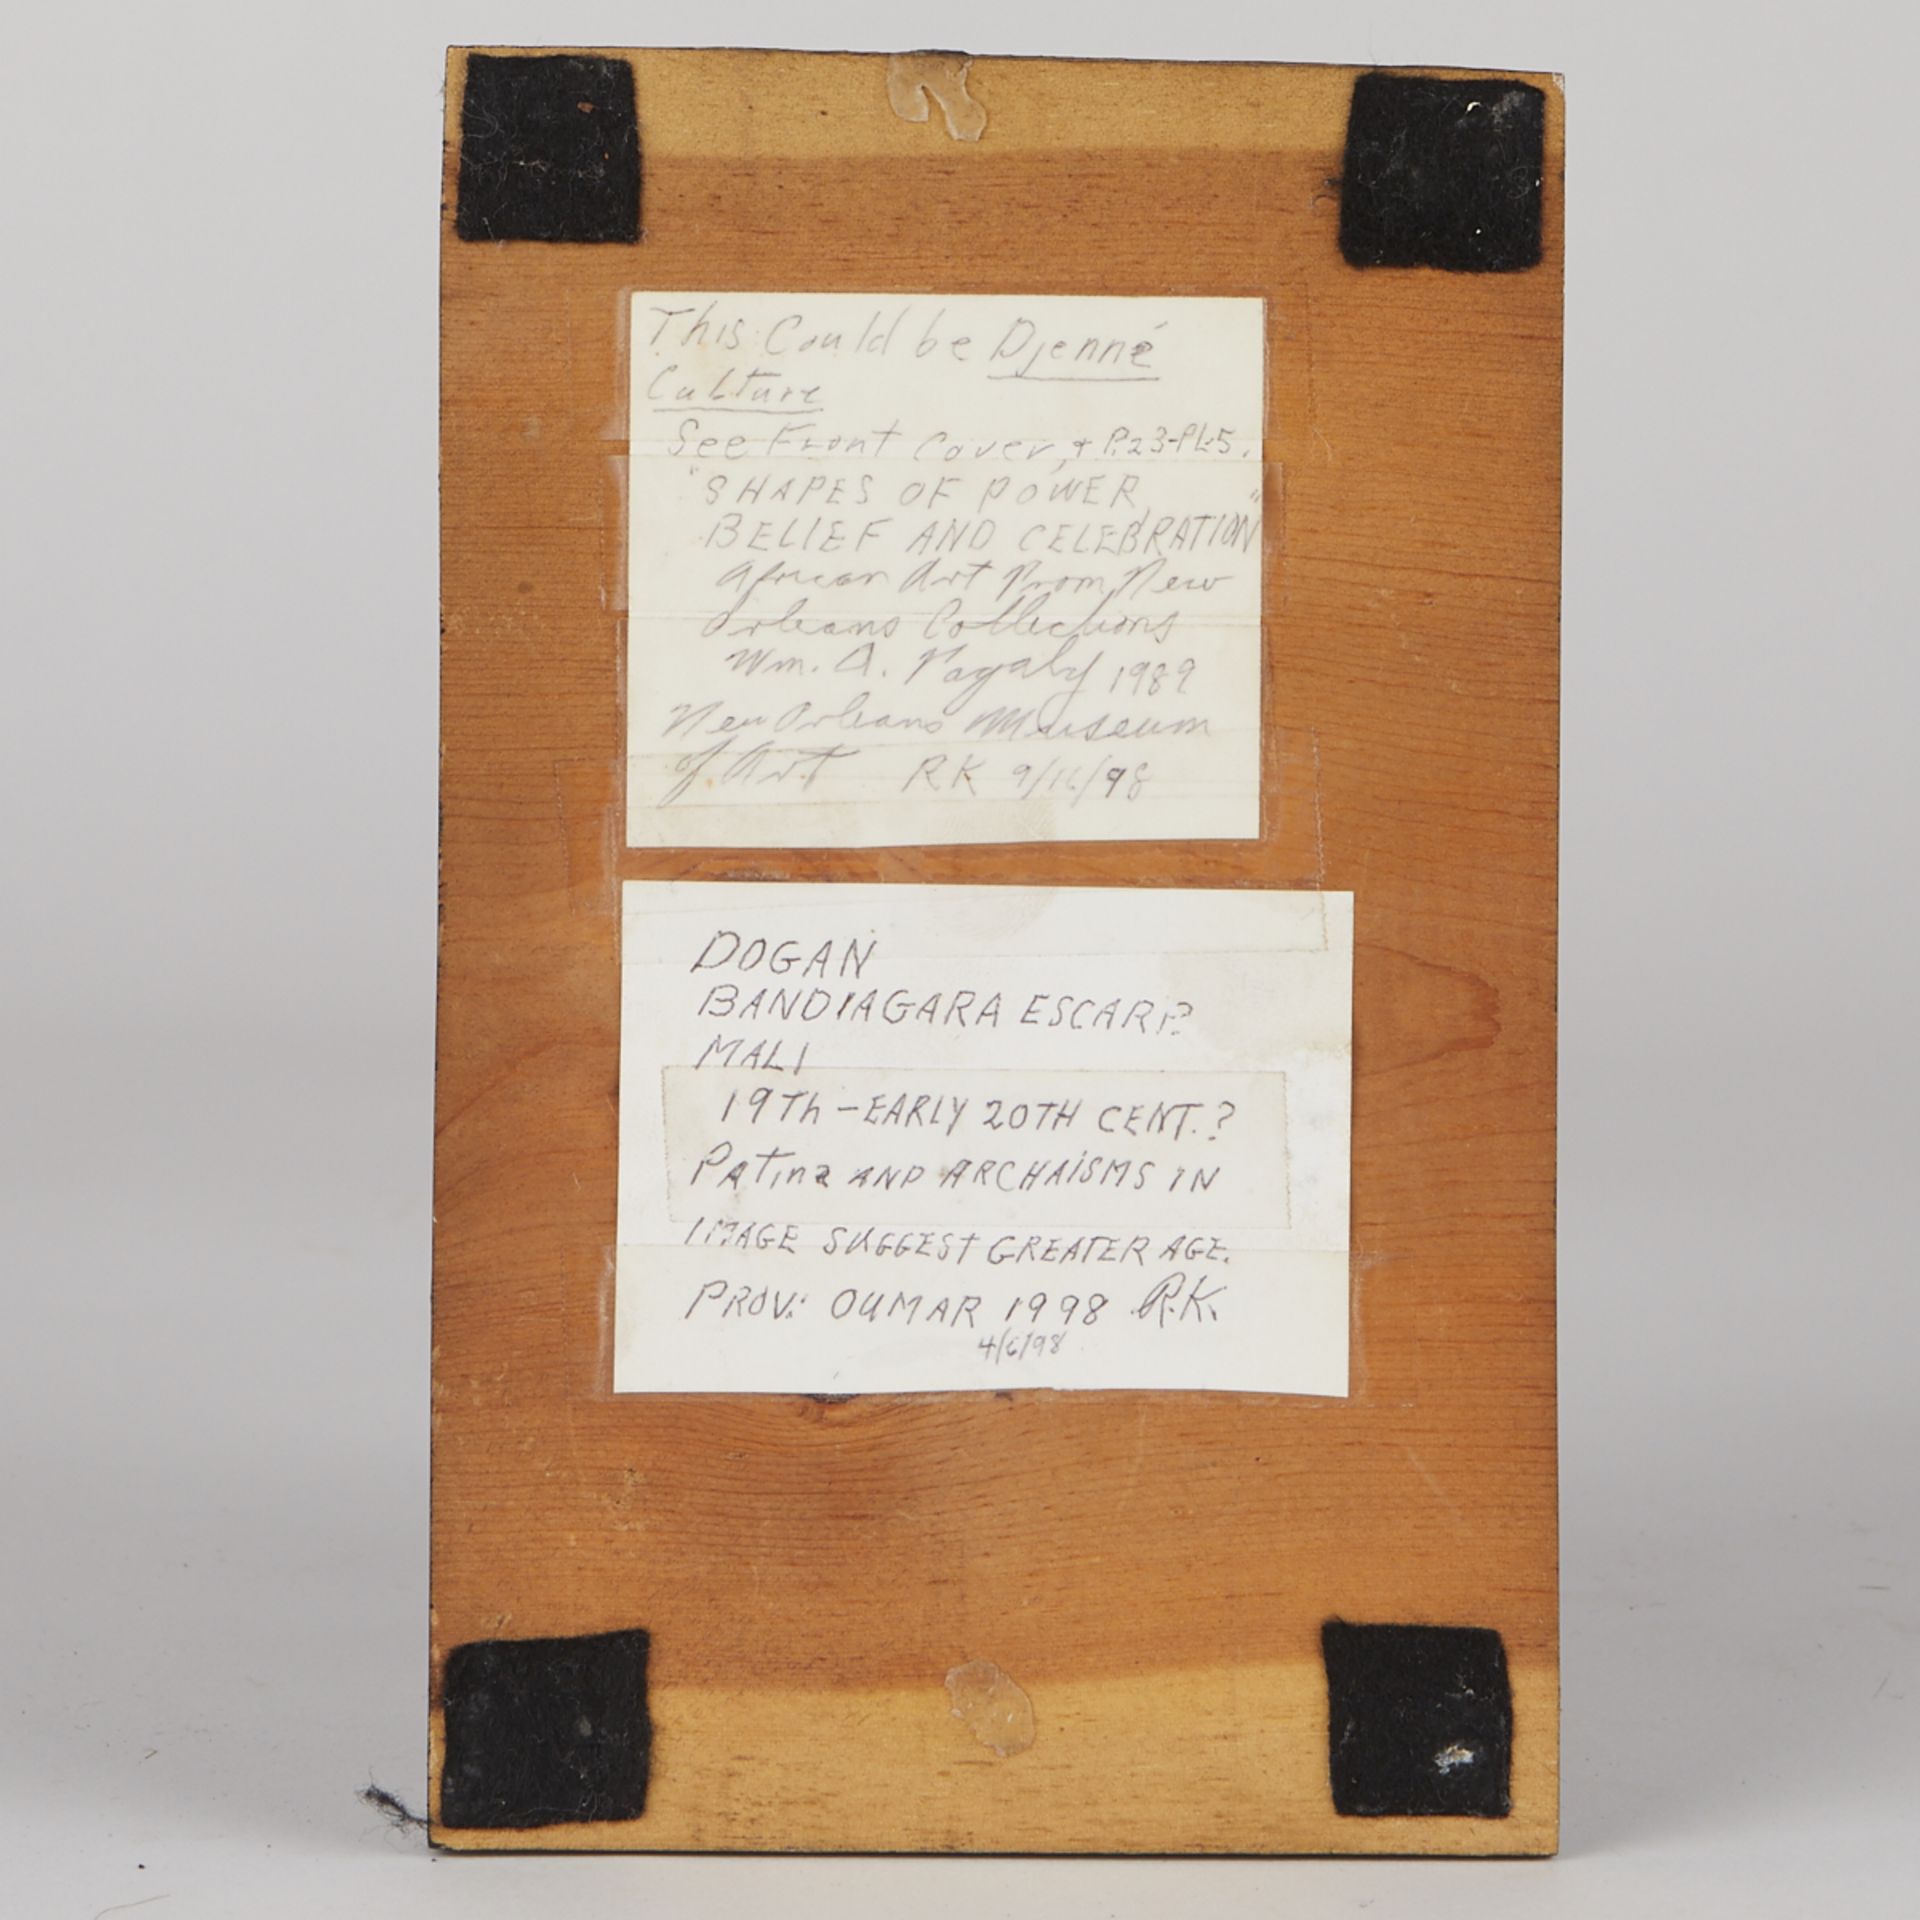 This Could be Djenné
Culture
See Front Cover, + P.23-Pl.5.
"SHAPES OF POWER,
BELIEF AND CELEBRATION"
African Art From New
Orleans Collections
Wm. A. Fagaly 1989
New Orleans Museum
of Art RK 9/16/98
DOGAN
BANDIAGARA ESCARP.
MALI
19Th - EARLY 20TH CENT.?
Patina AND ARCHAISMS IN
IMAGE SUGGEST GREATER AGE.
PROV: OUMAR 1998 R.K.
4/6/98